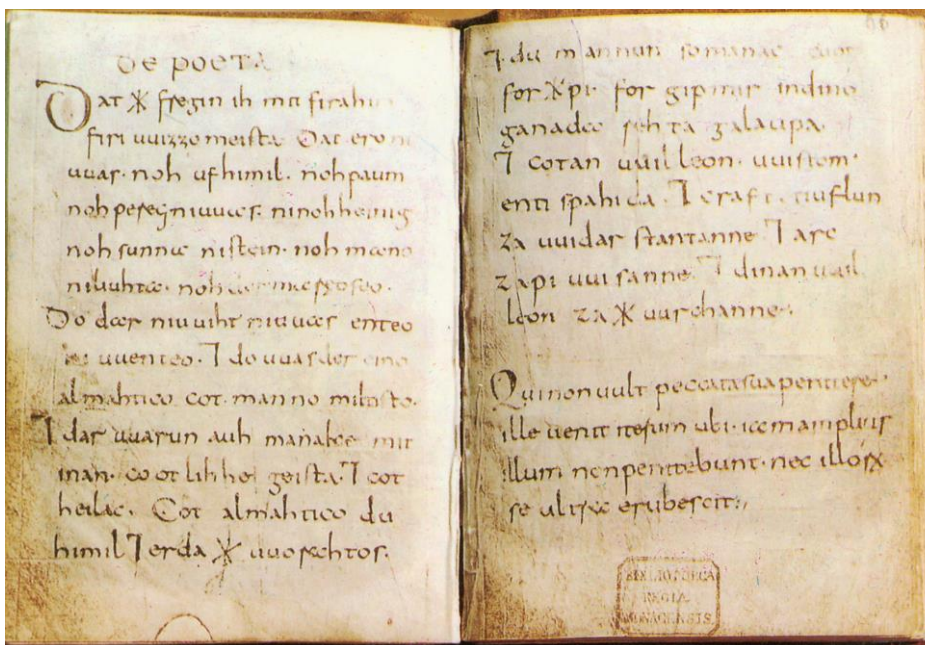 DE POETA
Dat ᚼ fregin ih mit firahim
firi uuizzo meista. Dat ero ni
uuas. noh ufhimil. noh paum
noh pereg ni uuas. ni noh heinig
noh sunna ni stein. noh mano
ni liuhta. noh der mareo seo.
Do dar niuuiht ni uuas enteo
ni uuenteo. ⁊ do uuas der eino
almahtico cot. manno miltisto.
⁊ dar uuarun auh manake mit
inan. cootlihhe geista. ⁊ cot
heilac. Cot almahtico du
himil ⁊ erda ᚼ uuorahtos.
⁊ du mannun so manac coot
for ᚼpi. for gipmir indino
ganada rehta galaupa.
⁊ cotan uuilleon. uuistom.
enti spahida. ⁊ craft. tiuflun
za uuidar stantanne. ⁊ arc
za piuuisanne. ⁊ dinan uuil
leon za ᚼ uurchanne.
Qui non uult peccata sua penitere.
ille uenit iterum ubi. iam amplius
illum non penitebunt. nec illorum
se ultra erubescit.
BIBLIOTHECA
REGIA
MONACENSIS